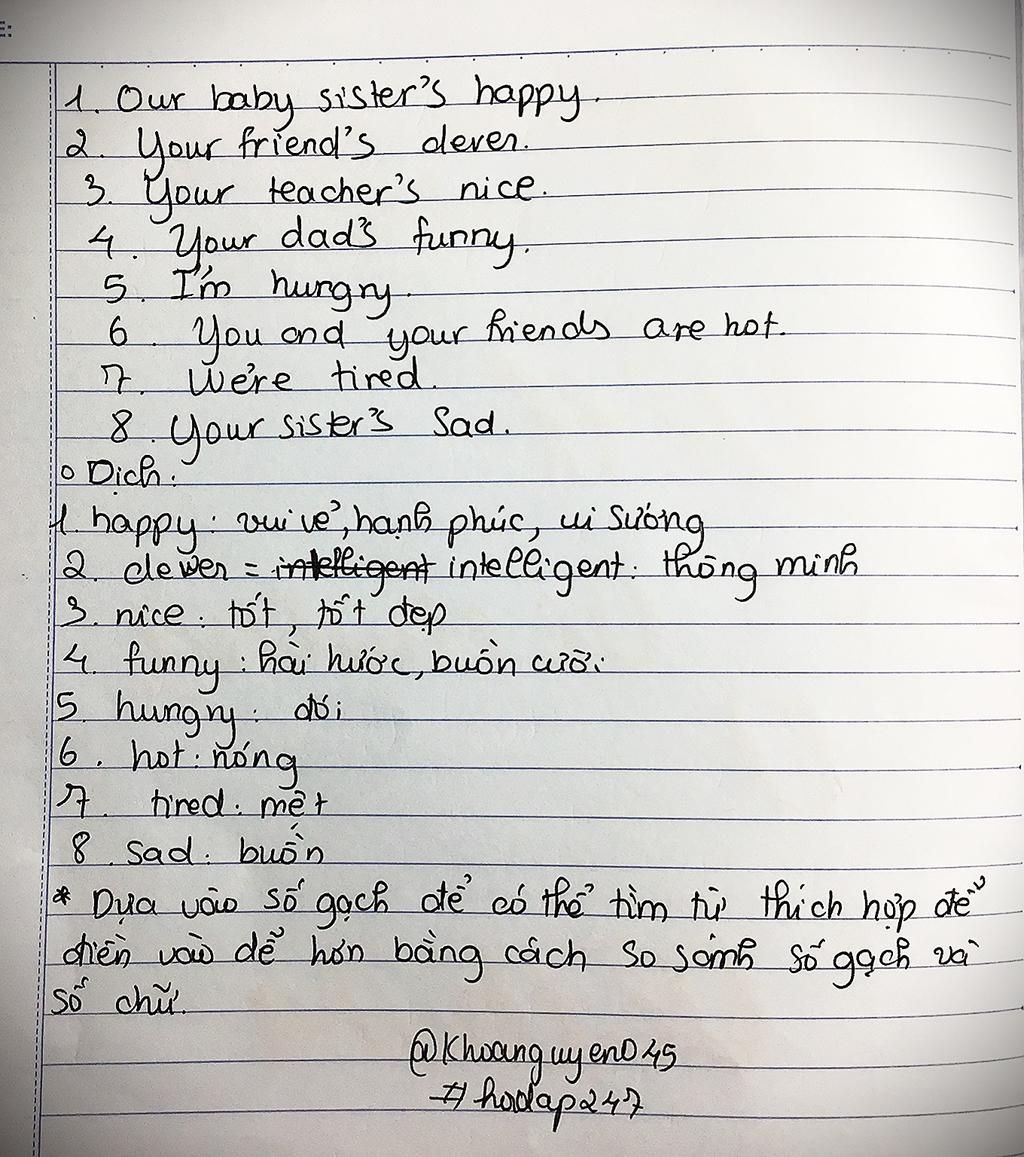 E:
1. Our baby sister's happy.
2. Your friend's clever.
3. Your teacher's nice.
4. Your dad's funny.
5. I'm hungry.
6. You and your friends are hot.
7. We're tired.
8. Your sister's sad.
o Dịch:
1. happy: vui vẻ, hạnh phúc, ui sướng
2. clever = intelligent intelligent: thông minh
3. nice: tốt, tốt đẹp
4. funny: hài hước, buồn cười
5. hungry: đói
6. hot: nóng
7. tired: mệt
8. sad: buồn
* Dựa vào số gạch để có thể tìm từ thích hợp để
điền vào dễ hơn bằng cách so sánh số gạch và
số chữ.
@Khoanguyen045
#hodap247